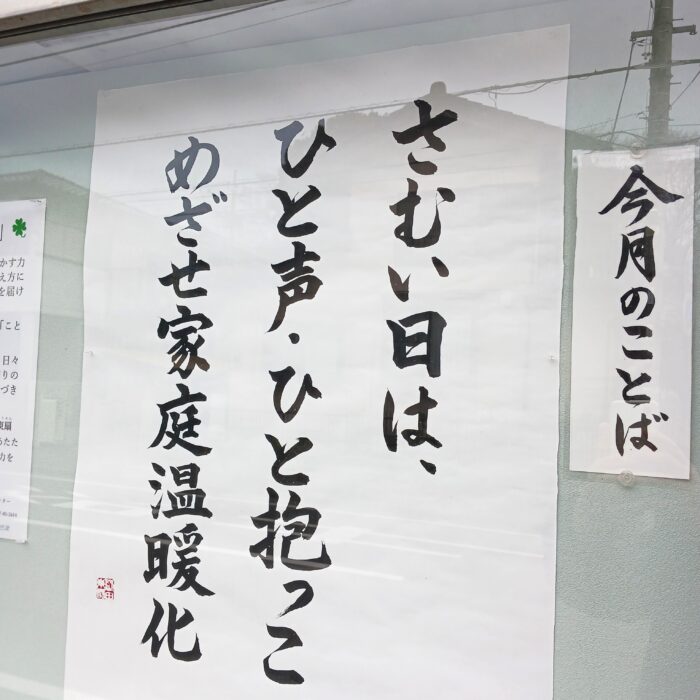 今月のことば
さむい日は、
ひと声・ひと抱っこ
めざせ家庭温暖化
かす力
え方に
を届け
こと
日々
りの
づき
たた
力を